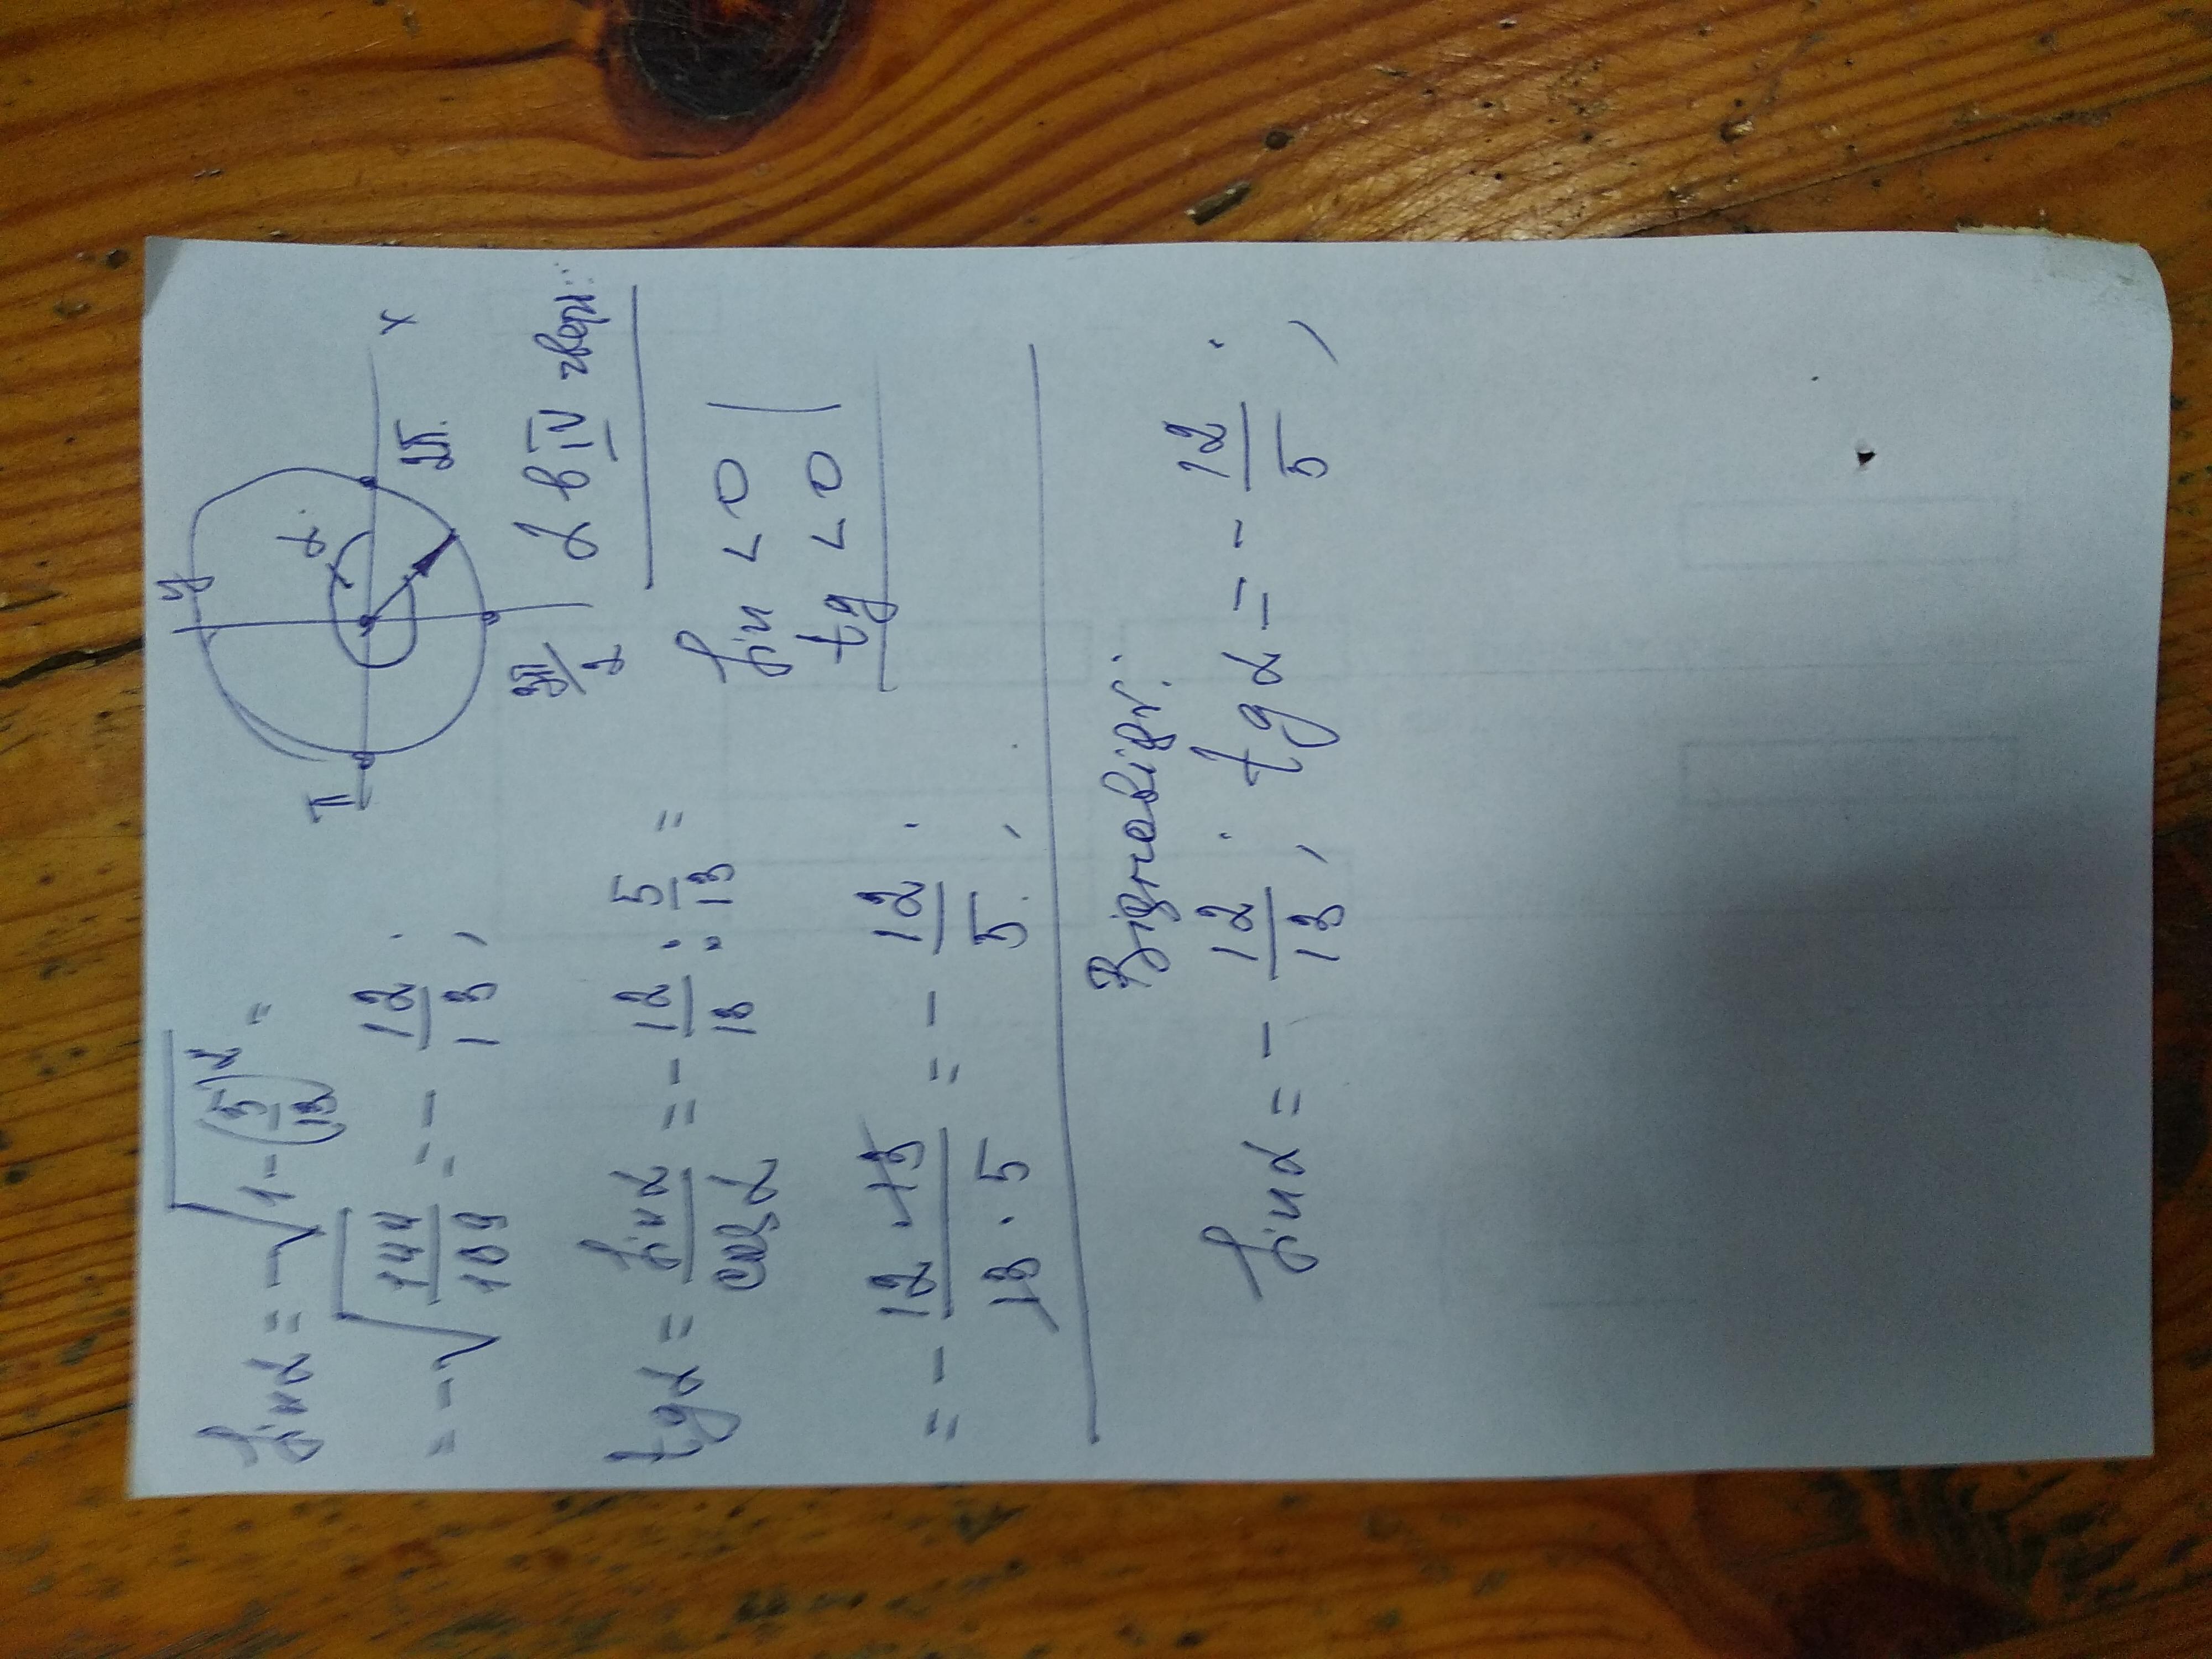 sinα = -√(1-(5/13)²) =
= -√(144/169) = - 12/13;
tgα = sinα/cosα = - 12/13 : 5/13 =
= - (12 · 13)/(13 · 5) = - 12/5;
y
α
x
π
2π
3π/2
α в IV чверт.
sin < 0
tg < 0
Відповідь:
sinα = - 12/13; tgα = - 12/5;